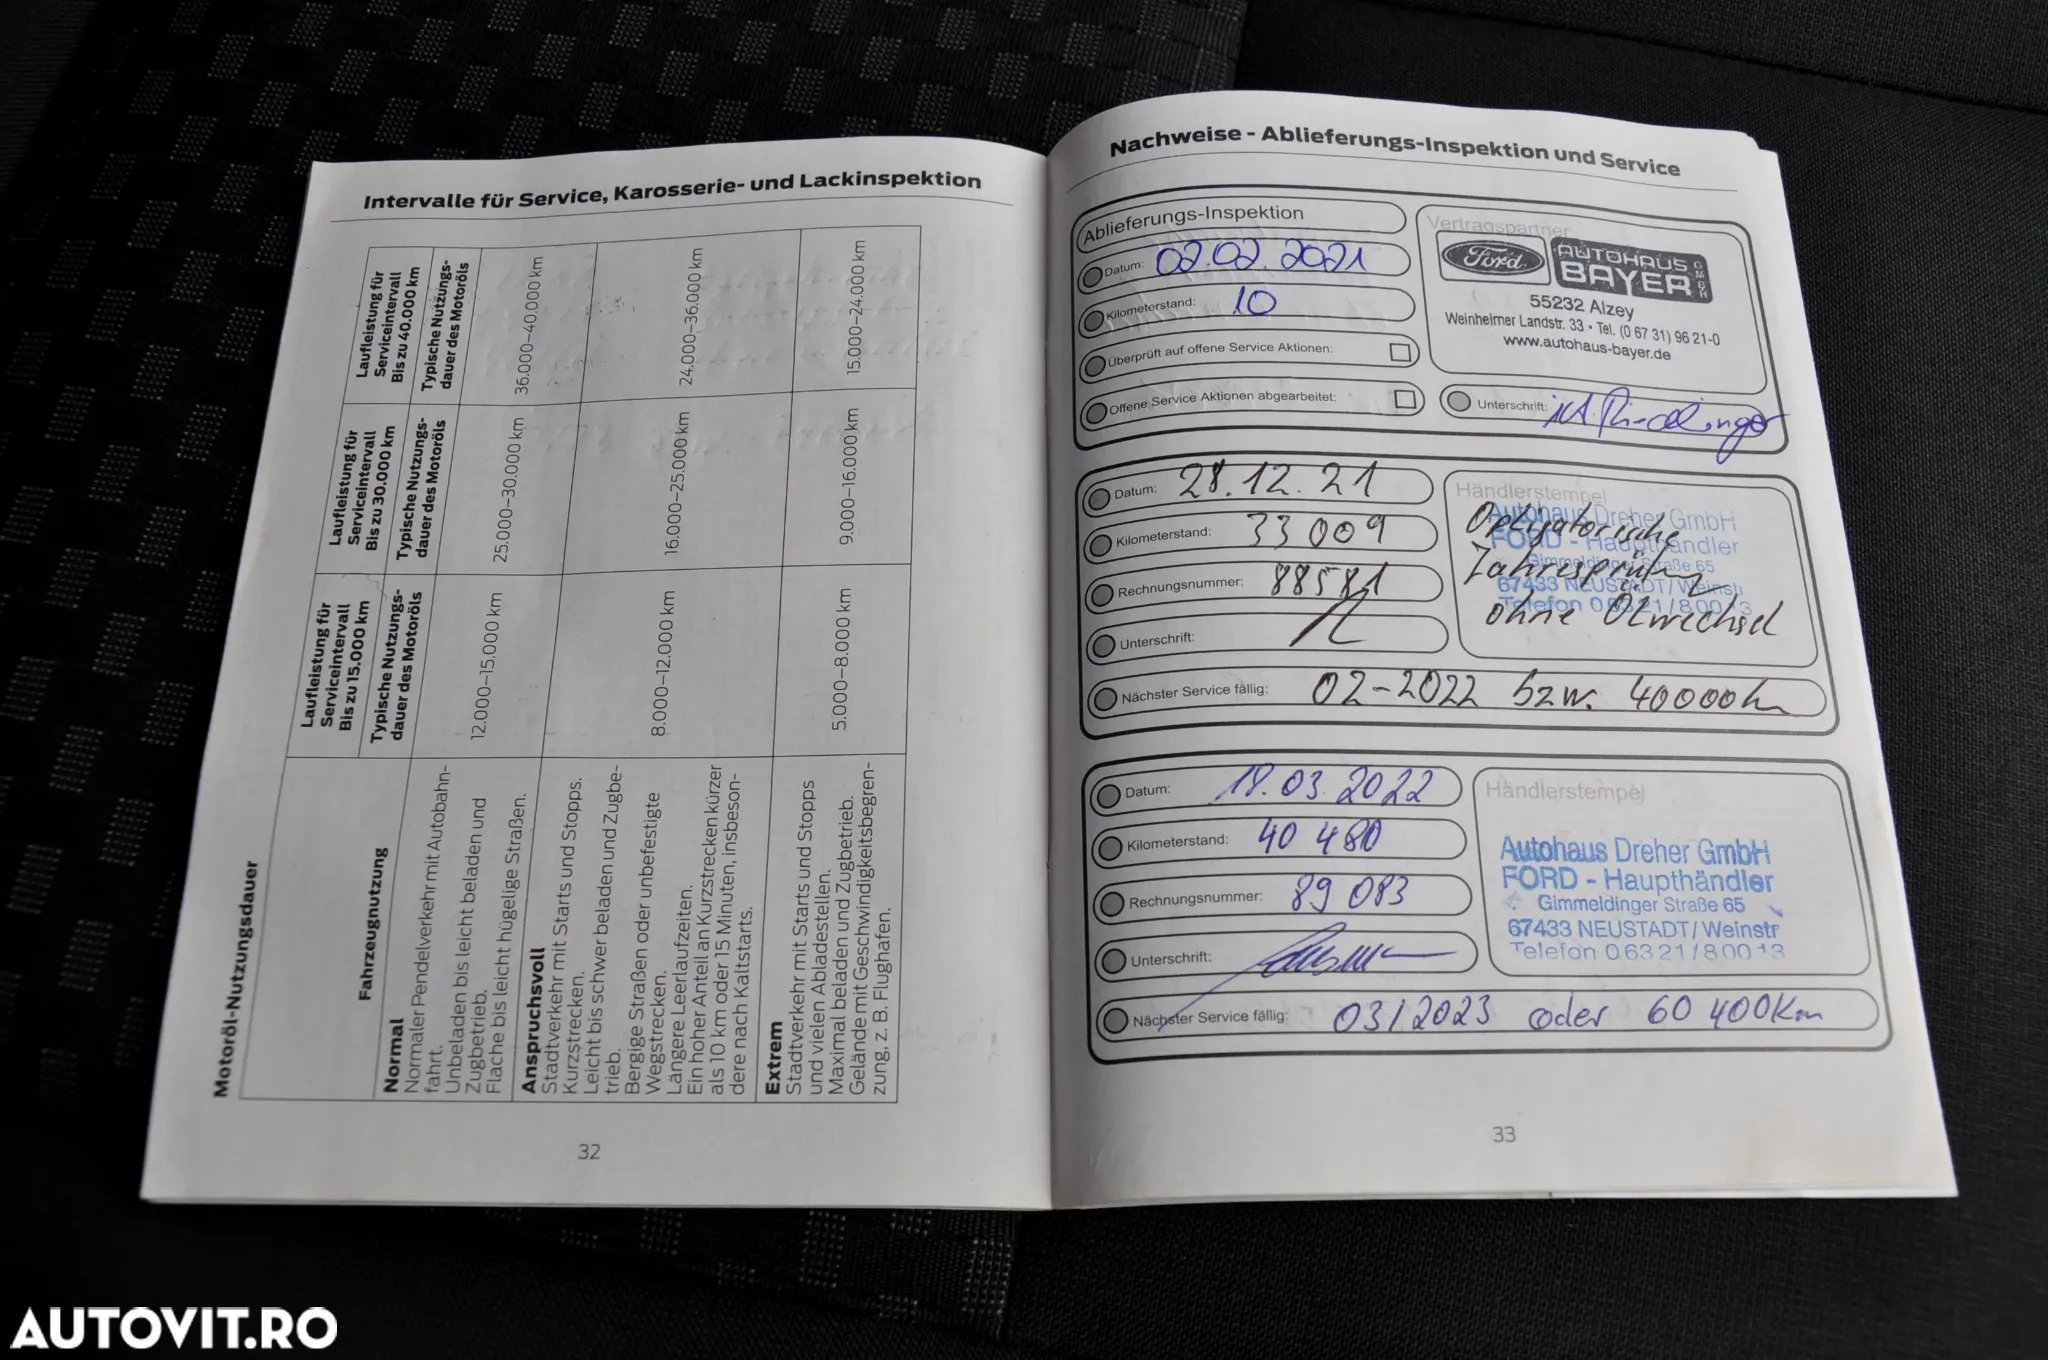 Intervalle für Service, Karosserie- und Lackinspektion
Motoröl-Nutzungsdauer
Fahrzeugnutzung
Laufleistung für
Serviceintervall
Bis zu 15.000 km
Laufleistung für
Serviceintervall
Bis zu 30.000 km
Laufleistung für
Serviceintervall
Bis zu 40.000 km
Typische Nutzungs-
dauer des Motoröls
Typische Nutzungs-
dauer des Motoröls
Typische Nutzungs-
dauer des Motoröls
Normal
Normaler Pendelverkehr mit Autobahn-
fahrt.
Unbeladen bis leicht beladen und
Zugbetrieb.
Flache bis leicht hügelige Straßen.
12.000–15.000 km
25.000–30.000 km
36.000–40.000 km
Anspruchsvoll
Stadtverkehr mit Starts und Stopps.
Kurzstrecken.
Leicht bis schwer beladen und Zugbe-
trieb.
Bergige Straßen oder unbefestigte
Wegstrecken.
Längere Leerlaufzeiten.
Ein hoher Anteil an Kurzstrecken kürzer
als 10 km oder 15 Minuten, insbeson-
dere nach Kaltstarts.
8.000–12.000 km
16.000–25.000 km
24.000–36.000 km
Extrem
Stadtverkehr mit Starts und Stopps
und vielen Abladestellen.
Maximal beladen und Zugbetrieb.
Gelände mit Geschwindigkeitsbegren-
zung, z. B. Flughafen.
5.000–8.000 km
9.000–16.000 km
15.000–24.000 km
32
Nachweise - Ablieferungs-Inspektion und Service
Ablieferungs-Inspektion
Datum: 02.02.2021
Kilometerstand: 10
Überprüft auf offene Service Aktionen:
Offene Service Aktionen abgearbeitet:
Vertragspartner
Ford AUTOHAUS
BAYER GMBH
55232 Alzey
Weinheimer Landstr. 33 • Tel. (0 67 31) 96 21-0
www.autohaus-bayer.de
Unterschrift:
Datum: 28.12.21
Kilometerstand: 33 009
Rechnungsnummer: 88581
Unterschrift:
Nächster Service fällig: 02-2022 bzw. 40000km
Händlerstempel
Autohaus Dreher GmbH
FORD - Haupthändler
Gimmeldinger Straße 65
67433 NEUSTADT/Weinstr
Telefon 06321/80013
Obligatorische
Jahresprüfung
ohne Ölwechsel
Datum: 18.03.2022
Kilometerstand: 40 480
Rechnungsnummer: 89 083
Unterschrift:
Nächster Service fällig: 03/2023 oder 60 400Km
Händlerstempel
Autohaus Dreher GmbH
FORD - Haupthändler
Gimmeldinger Straße 65
67433 NEUSTADT/Weinstr
Telefon 06321/80013
33
AUTOVIT.RO